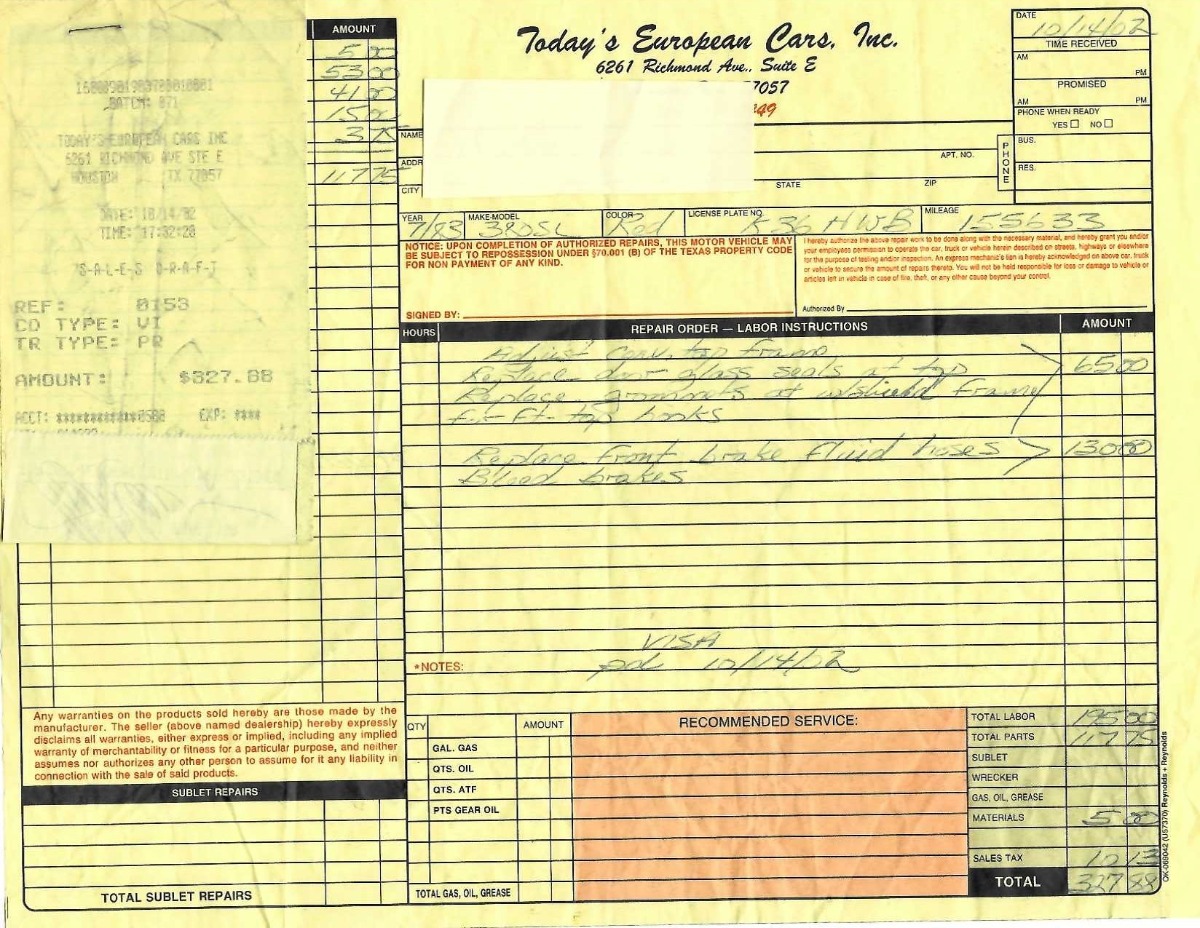 AMOUNT
5 00
53 00
41 00
15 00
3 75
117 75
BATCH: 071
TODAY'S EUROPEAN CARS INC
6261 RICHMOND AVE STE E
HOUSTON TX 77057
DATE: 10/14/02
TIME: 17:32:20
S-A-L-E-S D-R-A-F-T
REF: 0153
CD TYPE: VI
TR TYPE: PR
AMOUNT: $327.88
ACCT: ************0500 EXP: ****
Today's European Cars, Inc.
6261 Richmond Ave., Suite E
7057
49
DATE 10/14/02
TIME RECEIVED
AM PM
PROMISED
AM PM
PHONE WHEN READY
YES NO
PHONE
BUS.
RES.
NAME
ADDR
APT. NO.
CITY STATE ZIP
YEAR 7/83 MAKE-MODEL 380SL COLOR Red LICENSE PLATE NO. K36 HWB MILEAGE 155633
NOTICE: UPON COMPLETION OF AUTHORIZED REPAIRS, THIS MOTOR VEHICLE MAY
BE SUBJECT TO REPOSSESSION UNDER §70.001 (B) OF THE TEXAS PROPERTY CODE
FOR NON PAYMENT OF ANY KIND.
SIGNED BY:
I hereby authorize the above repair work to be done along with the necessary material, and hereby grant you and/or
your employees permission to operate the car, truck or vehicle herein described on streets, highways or elsewhere
for the purpose of testing and/or inspection. An express mechanic's lien is hereby acknowledged on above car, truck
or vehicle to secure the amount of repairs thereto. You will not be held responsible for loss or damage to vehicle or
articles left in vehicle in case of fire, theft, or any other cause beyond your control.
Authorized By
HOURS REPAIR ORDER — LABOR INSTRUCTIONS AMOUNT
Adjust conv. top frame
Replace door glass seals at top 65 00
Replace grommets at w/shield frame
f-ft-top hooks
Replace front brake fluid hoses 130 00
Bleed brakes
VISA
*NOTES: pd 10/14/02
Any warranties on the products sold hereby are those made by the
manufacturer. The seller (above named dealership) hereby expressly
disclaims all warranties, either express or implied, including any implied
warranty of merchantability or fitness for a particular purpose, and neither
assumes nor authorizes any other person to assume for it any liability in
connection with the sale of said products.
SUBLET REPAIRS
TOTAL SUBLET REPAIRS
QTY AMOUNT
GAL. GAS
QTS. OIL
QTS. ATF
PTS GEAR OIL
TOTAL GAS, OIL, GREASE
RECOMMENDED SERVICE:
TOTAL LABOR 195 00
TOTAL PARTS 117 75
SUBLET
WRECKER
GAS, OIL, GREASE
MATERIALS 5 00
SALES TAX 10 13
TOTAL 327 88
OK-069042 (U57370) Reynolds + Reynolds